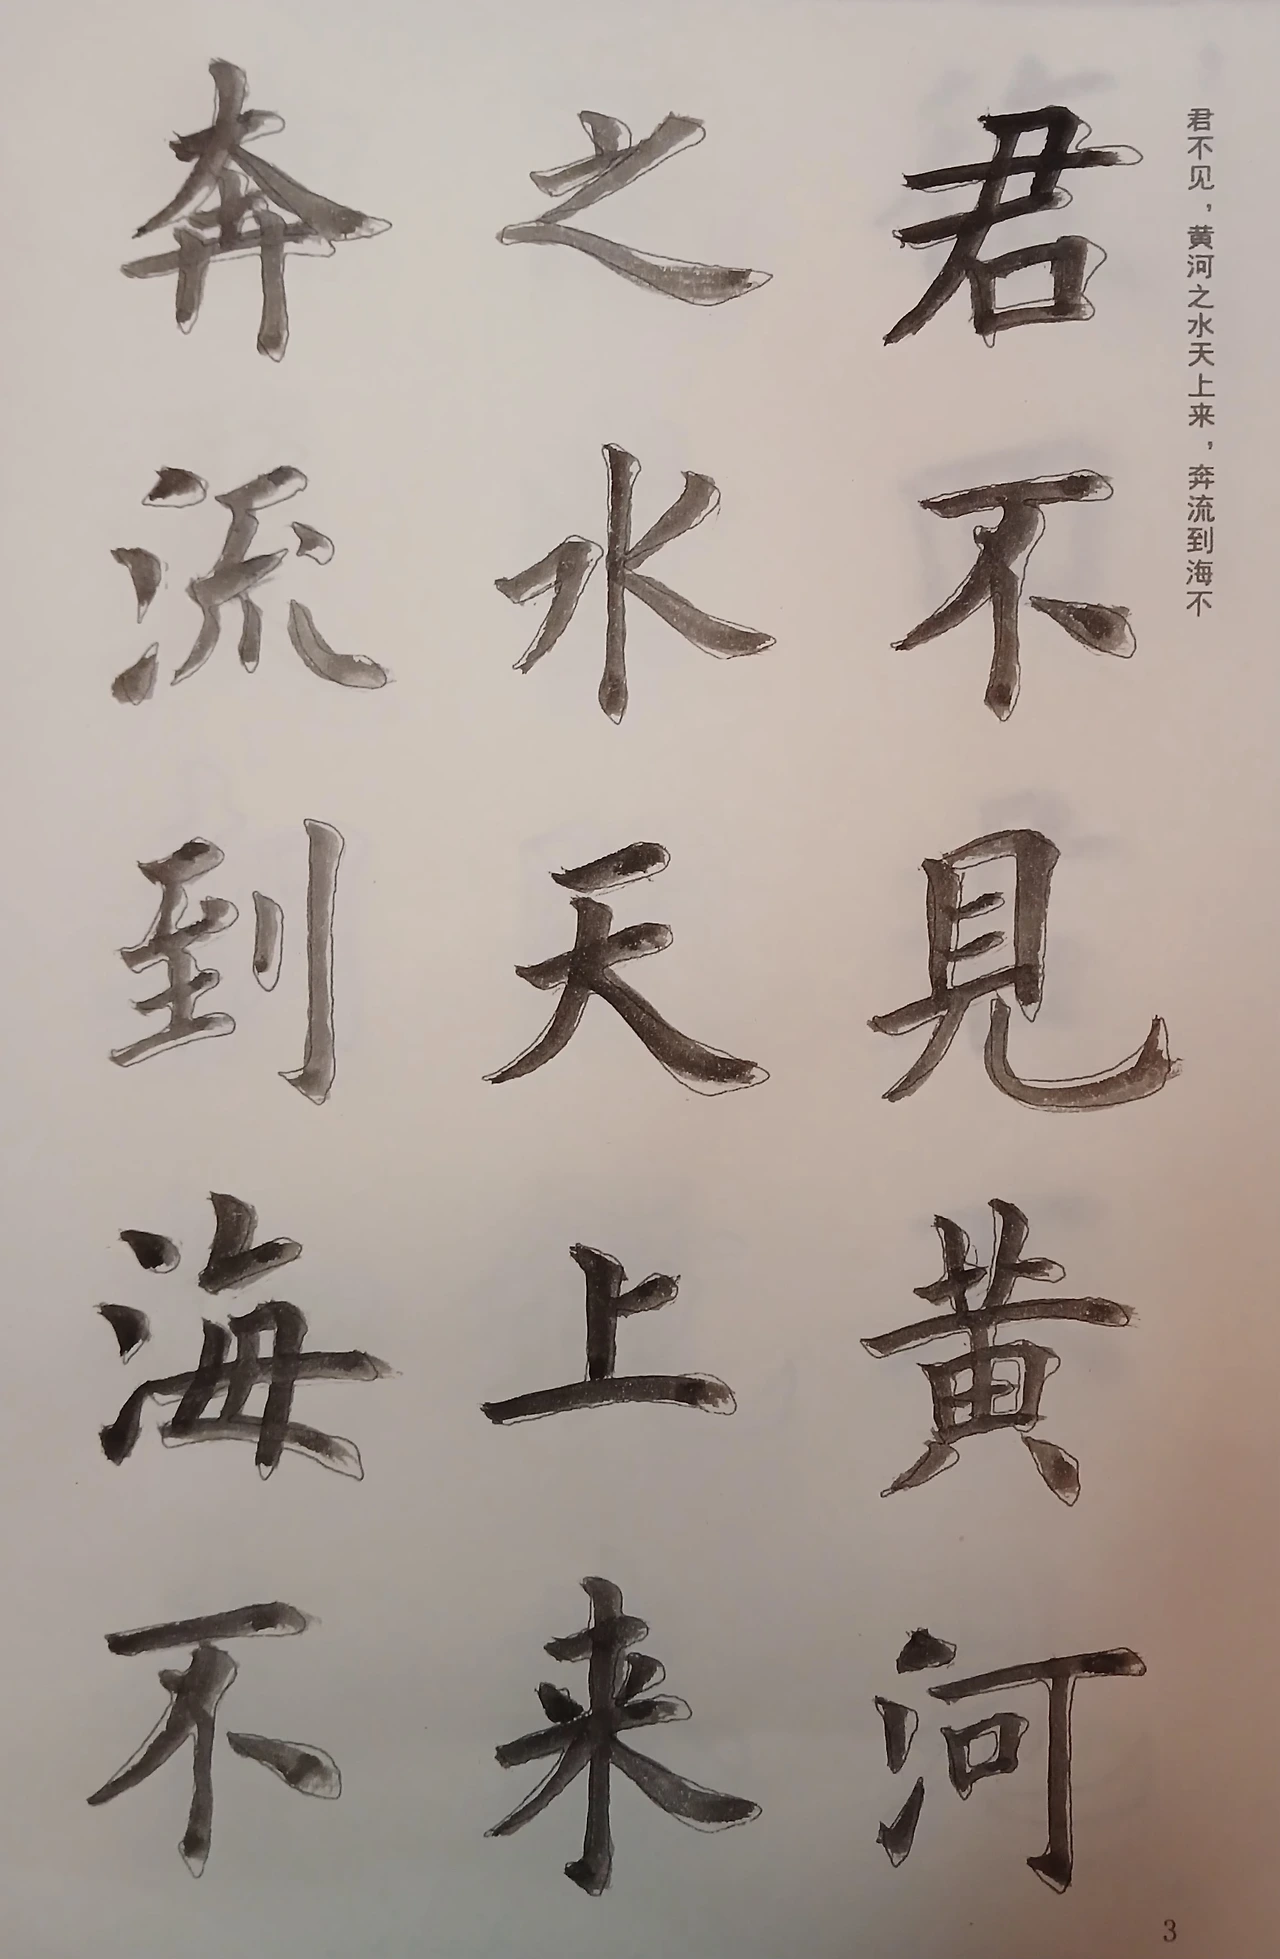 君不见，黄河之水天上来，奔流到海不
君不見黄河
之水天上来
奔流到海不
3